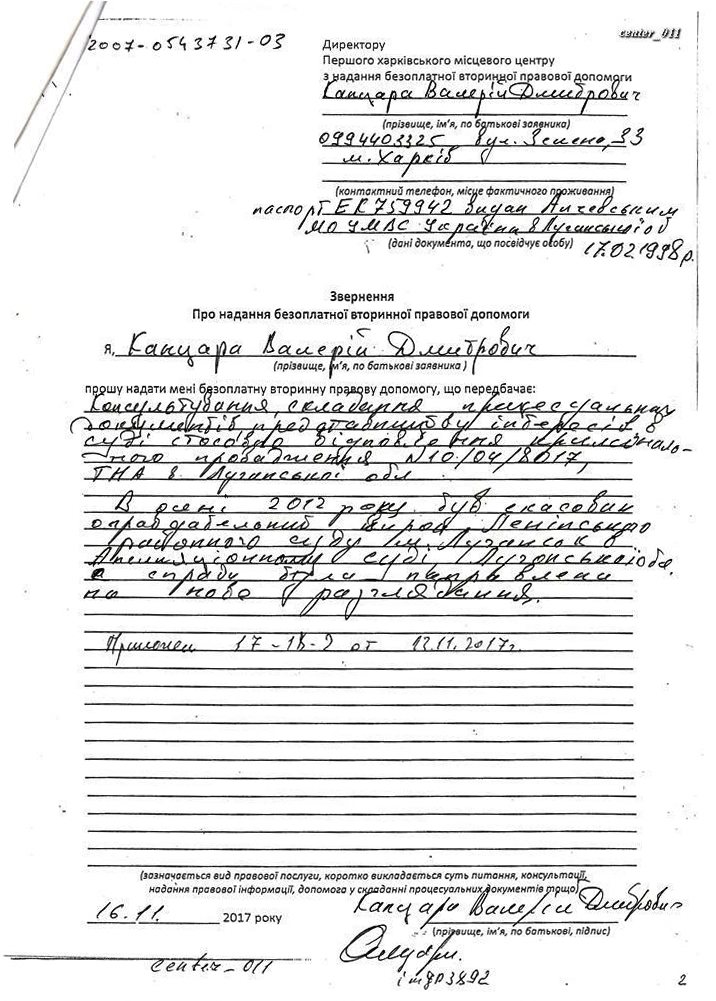 center_011
2007-0543731-03
Директору
Першого харківського місцевого центру
з надання безоплатної вторинної правової допомоги
Канцара Валерій Дмитрович
(прізвище, ім'я, по батькові заявника)
0994403325, вул. Зелена, 33
м. Харків
(контактний телефон, місце фактичного проживання)
паспорт ЕК759942 видан Алчевським
МО УМВС України в Луганській об
(дані документа, що посвідчує особу) 17.02 1998 р.
Звернення
Про надання безоплатної вторинної правової допомоги
Я, Канцара Валерій Дмитрович
(прізвище, ім'я, по батькові заявника )
прошу надати мені безоплатну вторинну правову допомогу, що передбачає:
Консультування, складання процессуальних
документів представництву інтересів в
суді стосовно відновлення криміналь-
ного провадження N10/04/8017,
в Луганської обл.
В осені 2012 року був скасован
оправдательний вирок Ленінського
районного суду м. Луганськ в
Апеляционному суді Луганської об.
а справу була направлена
на нове разглядання.
17-18-2 от 12.11.2017г.
(зазначається вид правової послуги, коротко викладається суть питання, консультації,
надання правової інформації, допомога у складанні процесуальних документів тощо)
16.11. 2017 року
Канцара Валерій Дмитрович
(прізвище, ім'я, по батькові, підпис)
center-011
імдр3892
2